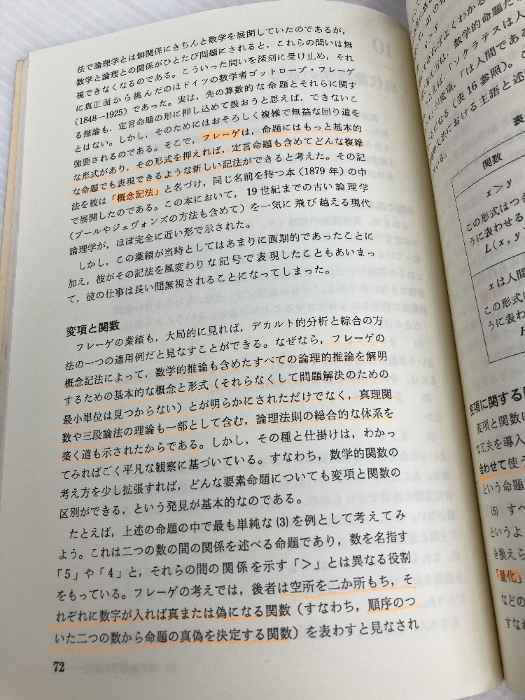 法で論理学とは無関係にきちんと数学を展開していたのであるが,
数学と論理との関係がひとたび問題にされると, これらの問いは無
視できなくなるのである。こういった問いを深刻に受け止め, それ
に真正面から挑んだのはドイツの数学者ゴットロープ・フレーゲ
(1848—1925)であった。実は, 先の算数的な命題とそれらに関す
る推論も, 定言命題の形に押し込めて扱おうと思えば, できないこ
とはない。しかし, そのためにはおそろしく複雑で無益な回り道を
強要されるのである。そこで, フレーゲは, 命題にはもっと基本的
な形式があり, その形式を押えれば, 定言命題も含めてどんな複雑
な命題でも表現できるような新しい記法ができると考えた。その記
法を彼は「概念記法」と名づけ, 同じ名前を持つ本(1879年)の中
で展開したのである。この本において, 19世紀までの古い論理学
(ブールやジェヴォンズの方法も含めて)を一気に飛び越える現代
論理学が, ほぼ完全に近い形で示された。
しかし, この業績が当時としてはあまりに画期的であったことに
加え, 彼がその記法を風変わりな記号で表現したこともあいまっ
て, 彼の仕事は長い間無視されることになってしまった。
変項と関数
フレーゲの業績も, 大局的に見れば, デカルト的分析と綜合の方
法の一つの適用例だと見なすことができる。なぜなら, フレーゲの
概念記法によって, 数学的推論も含めたすべての論理的推論を解明
するための基本的な概念と形式(それらなくして問題解決のための
最小単位は見つからない)とが明らかにされただけでなく, 真理関
数や三段論法の理論も一部として含む, 論理法則の総合的な体系を
築く道も示されたからである。しかし, その種と仕掛けは, わかっ
てみればごく平凡な観察に基づいている。すなわち, 数学的関数の
考え方を少し拡張すれば, どんな要素命題についても変項と関数の
区別ができる, という発見が基本的なのである。
たとえば, 上述の命題の中で最も単純な(3)を例として考えてみ
よう。これは二つの数の間の関係を述べる命題であり, 数を名指す
「5」や「4」と, それらの間の関係を示す「>」とは異なる役割
をもっている。フレーゲの考えでは, 後者は空所を二か所もち, そ
れぞれに数字が入れば真または偽になる関数(すなわち, 順序のつ
いた二つの数から命題の真偽を決定する関数)を表わすと見なされ
72
関数
x>y
この形式はつ
うに表わせる
L(x, y
xは人間
この形式
うに表わ
変項に関する
変項と関数
な工夫を導入
合わせて使う
という命題
(5) すべ
という
き換えら
「量化」
などの
すな